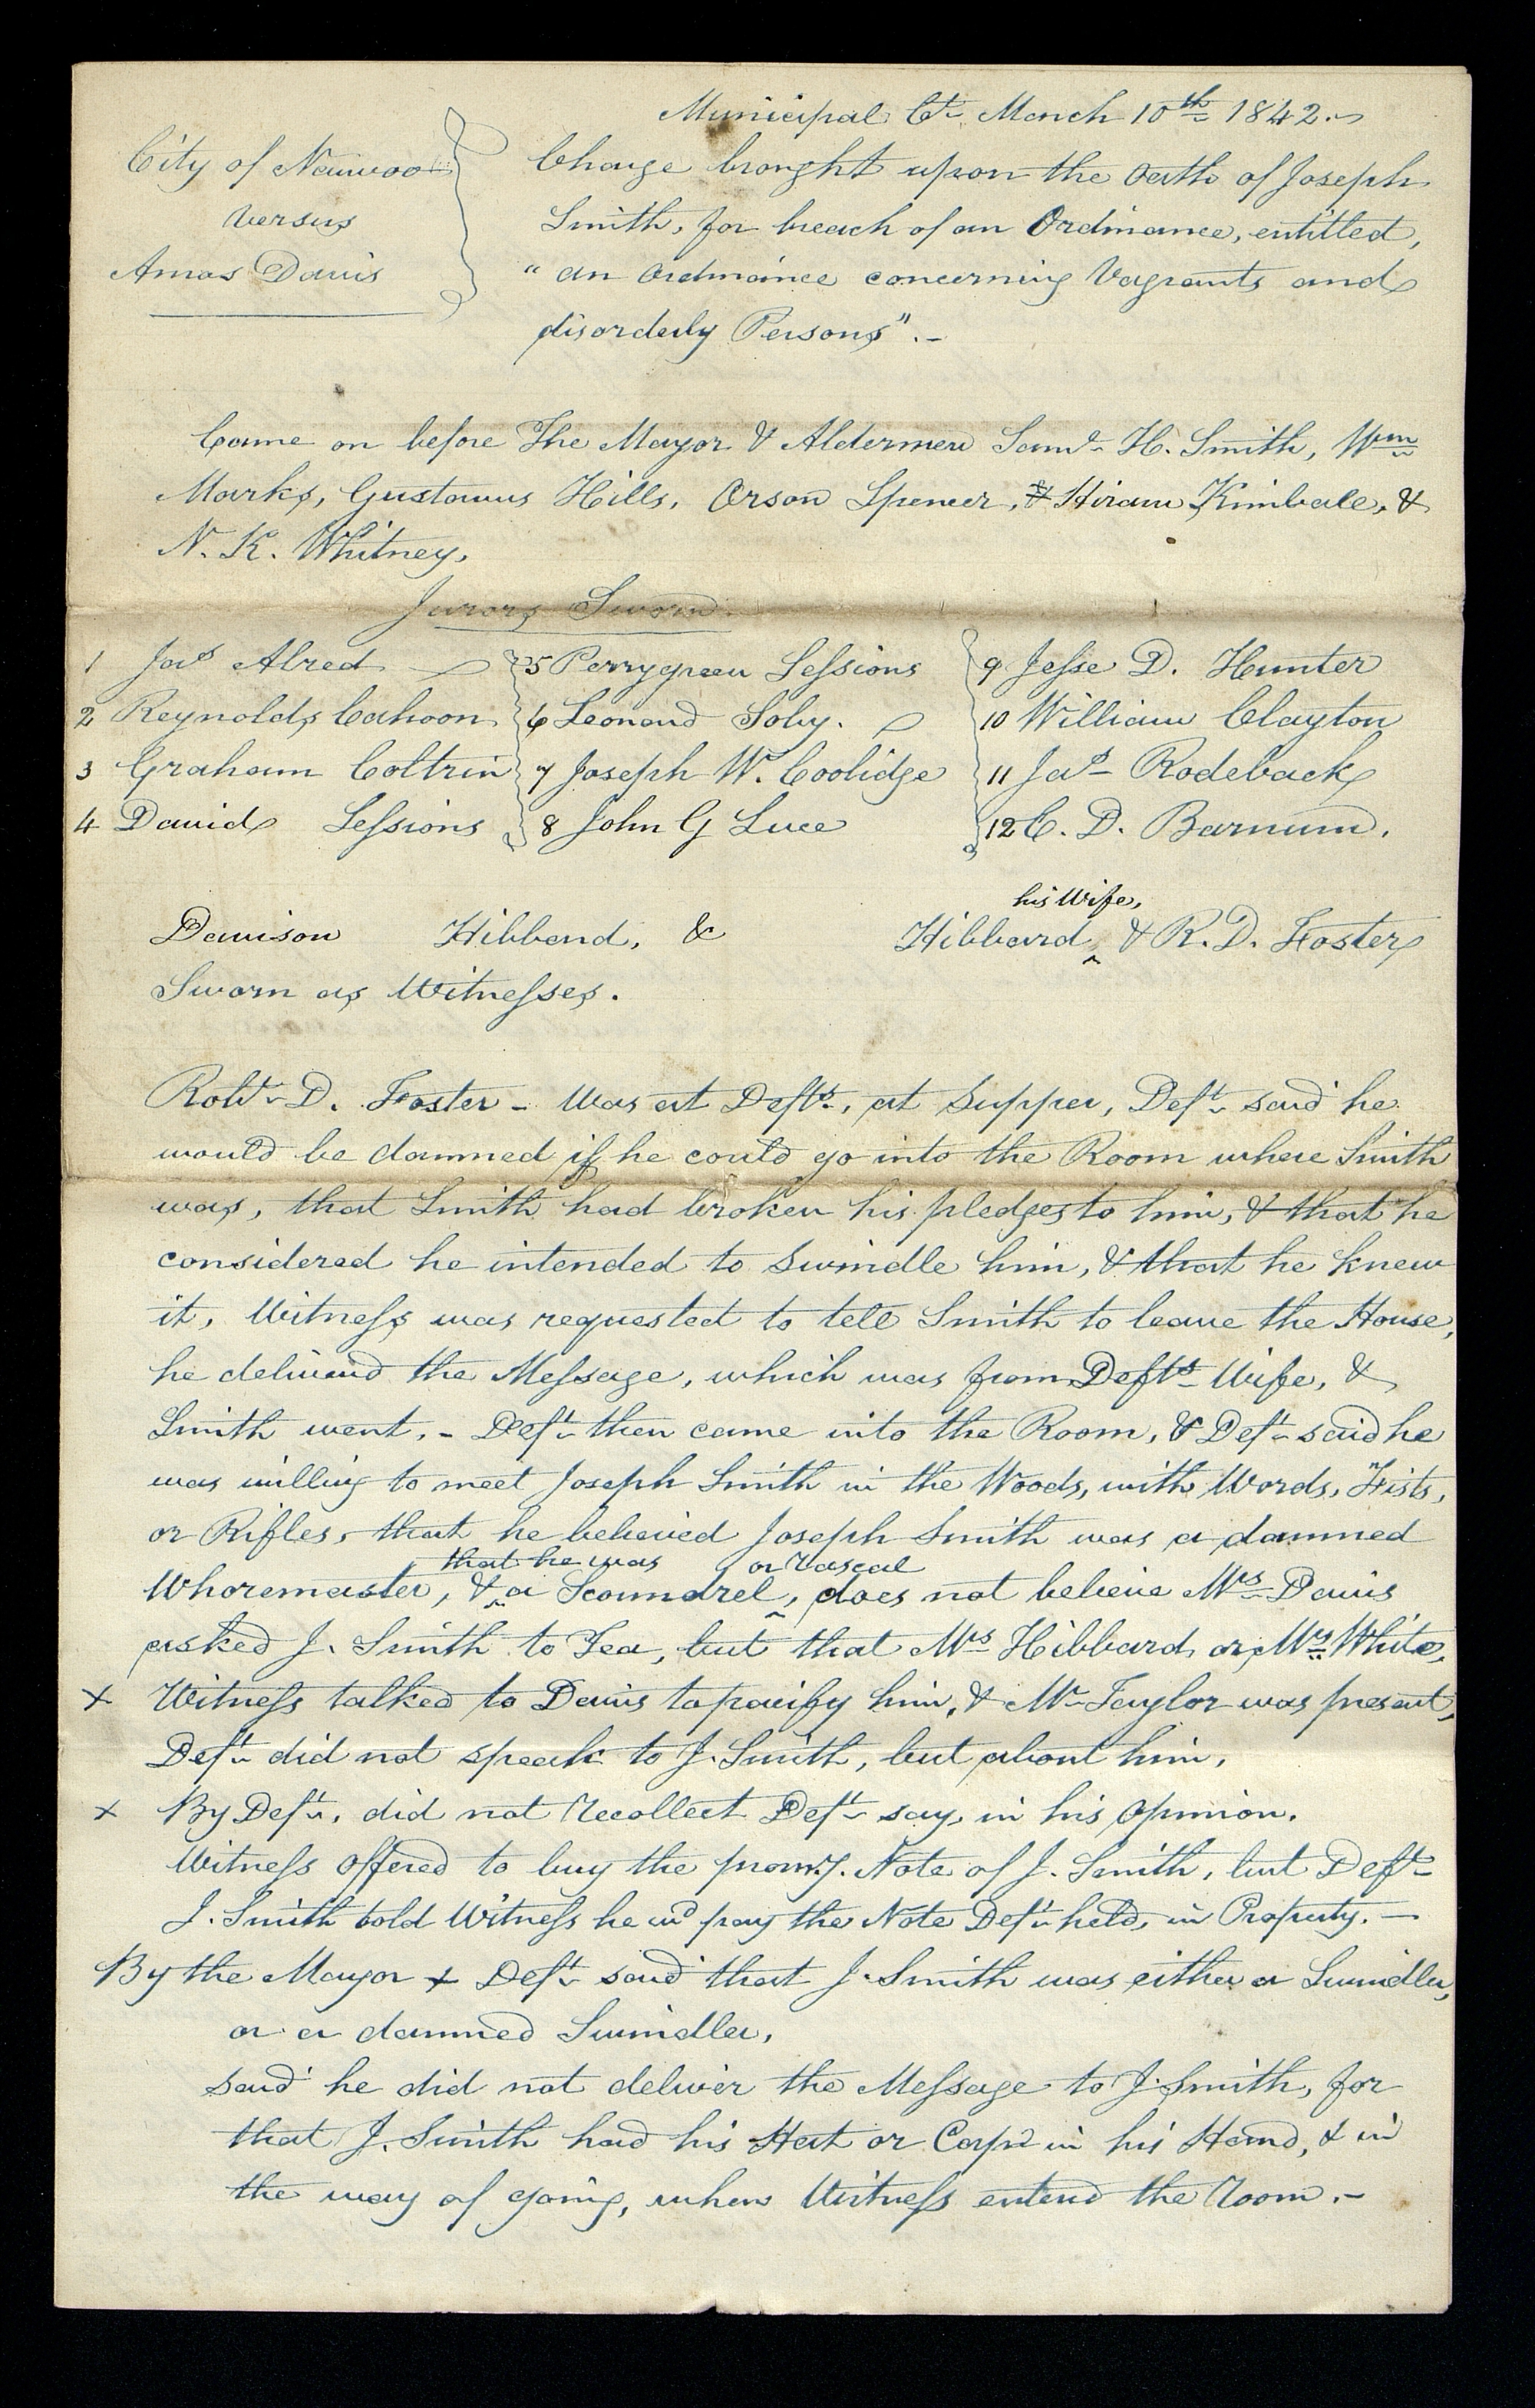 Municipal Ct. March 10th 1842.
City of Nauvoo
versus
Amos Davis
Charge brought upon the Oath of Joseph
Smith, for breach of an Ordinance, entitled,
"an Ordinance concerning Vagrants and
disorderly Persons".-
Came on before The Mayor & Aldermen Saml. H. Smith, Wm
Marks, Gustavus Hills, Orson Spencer, & Hiram Kimball, &
N. K. Whitney,
Jurors Sworn.
1 Jas Alred 5 Perrygreen Sessions 9 Jesse D. Hunter
2 Reynolds Cahoon 6 Leonard Soby. 10 William Clayton
3 Graham Coltrin 7 Joseph W. Coolidge 11 Jas Rodeback
4 David Sessions 8 John G Luce 12 C. D. Barnum.
his Wife,
Davison Hibbard, & Hibbard & R. D. Foster
Sworn as Witnesses.
Robt. D. Foster - Was at Defts., at Supper, Deft. said he
would be damned if he could go into the Room where Smith
was, that Smith had broken his pledges to him, & that he
considered he intended to swindle him, & that he knew
it, Witness was requested to tell Smith to leave the House,
he deliverd the Message, which was from Defts Wife, &
Smith went. - Deft. then came into the Room, & Deft. said he
was willing to meet Joseph Smith in the Woods, with Words, Fists,
or Rifles, that he believed Joseph Smith was a damned
that he was or Rascal
Whoremaster, & a Scoundrel, does not believe Mrs Davis
asked J. Smith to Tea, but that Mrs Hibbard or Mrs White,
x Witness talked to Davis to pacify him, & Mr. Taylor was present,
Deft. did not speak to J. Smith, but about him,
x By Deft., did not recollect Deft. say, in his opinion.
Witness offered to buy the promy. Note of J. Smith, but Deft.
J. Smith told Witness he wd pay the Note Deft. held, in Property. -
By the Mayor x Deft. said that J. Smith was either a Swindler,
or a damned Swindler,
said he did not deliver the Message to J. Smith, for
that J. Smith had his Hat or Cap in his Hand, & in
the way of going, when Witness enterd the Room.-